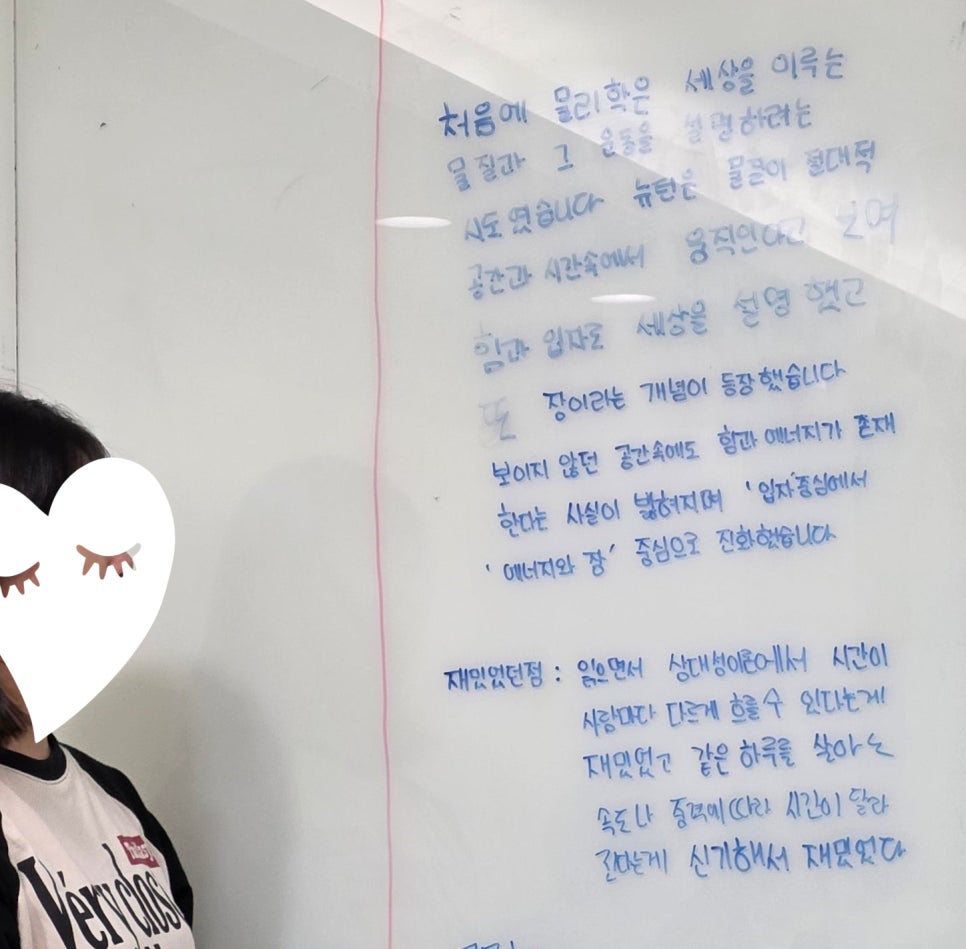 처음에 물리학은 세상을 이루는
물질과 그 운동을 설명하려는
시도였습니다 뉴턴은 물질이 절대적
공간과 시간속에서 움직인다고 보며
힘과 입자로 세상을 설명 했고
또 장이라는 개념이 등장했습니다
보이지 않던 공간속에도 힘과 에너지가 존재
한다는 사실이 밝혀지며 '입자'중심에서
'에너지와 장' 중심으로 진화했습니다
재밌었던점 : 읽으면서 상대성이론에서 시간이
사람마다 다르게 흐를수 있다는게
재밌었고 같은 하루를 살아도
속도나 중력에따라 시간이 달라
진다는게 신기해서 재밌었다
Véry clos